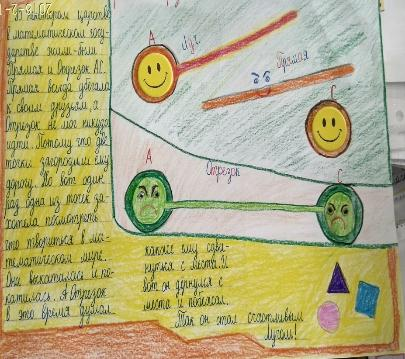 -7-9.07
В некотором царстве
в математическом госу-
дарстве жили-были
Прямая и Отрезок АС.
Прямая всегда убегала
к своим друзьям, а
Отрезок не мог никуда
идти. Потому что две
точки загородили ему
дорогу. Но вот один
раз одна из точек за-
хотела посмотреть
что творится в ма-
тематическом мире.
Она выкаталась и по-
катилась. А Отрезок
в это время думал
как же ему сдви-
нуться с места. И
вот он дернулся с
места и побежал.
Так он стал счастливым
Лучом!
А
Луч
Прямая
С
А
Отрезок
С